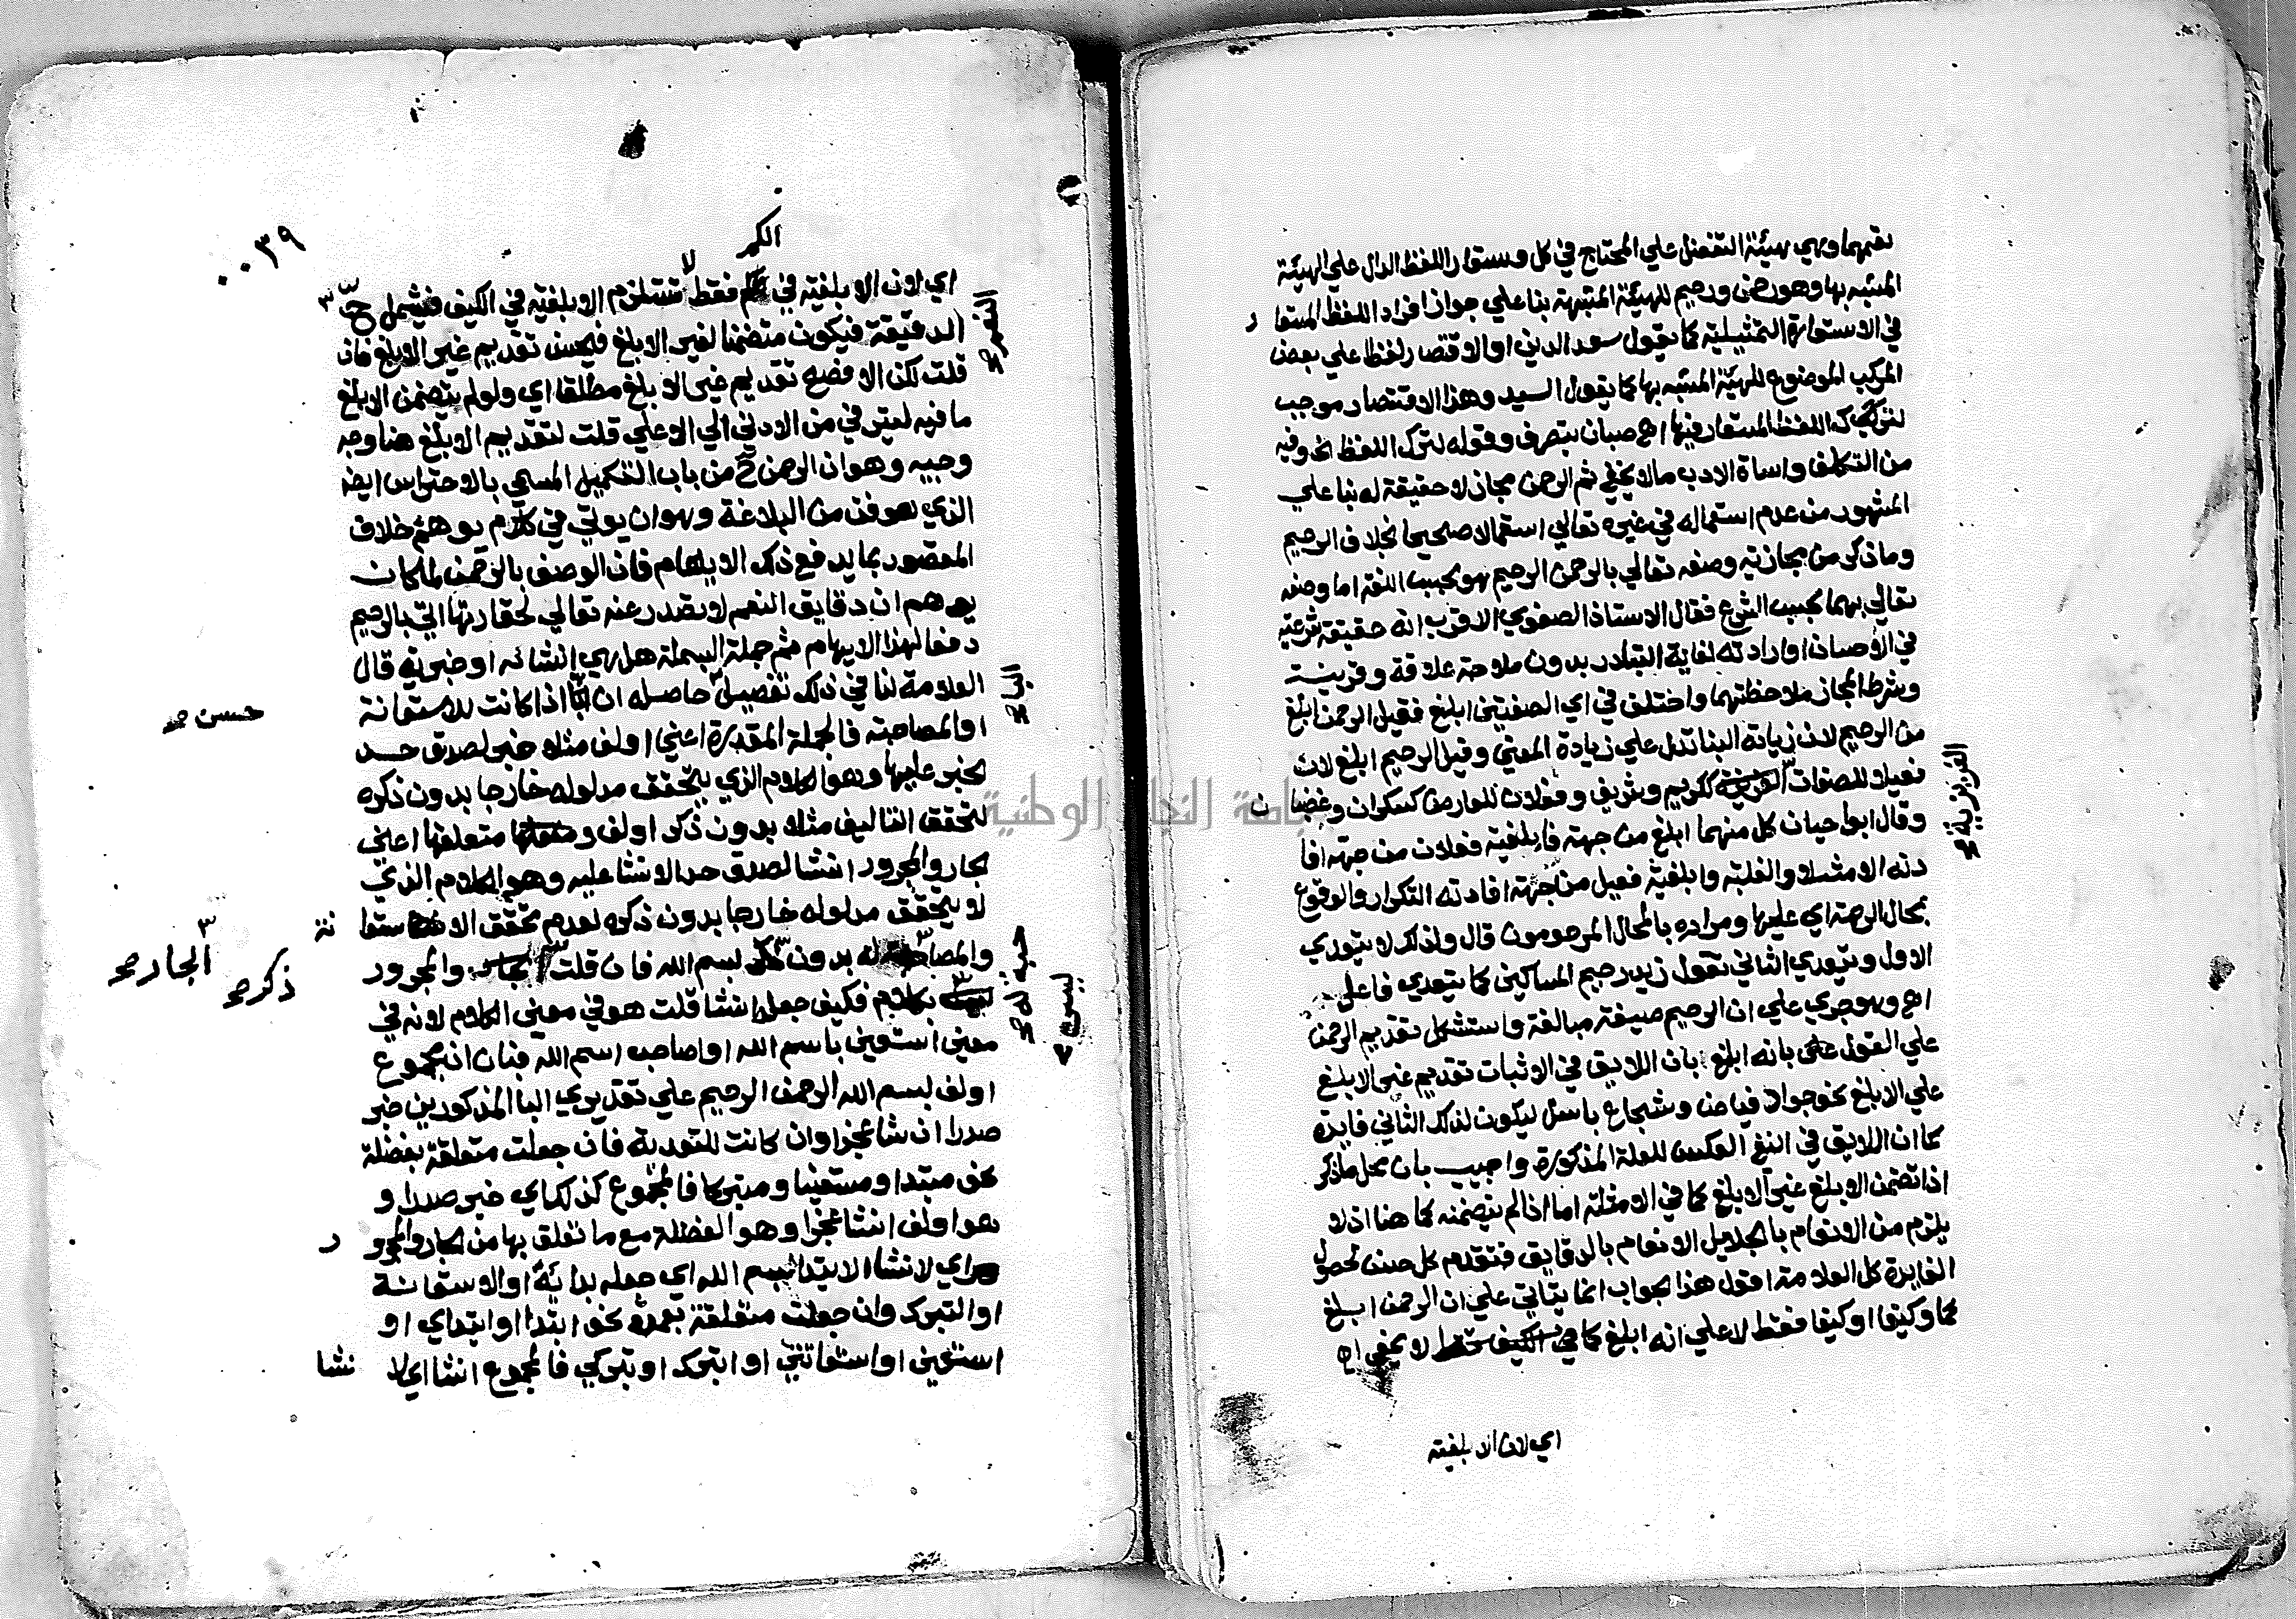 نعمهما وهي هيئة التفضل علي المحتاج في كل ويستعار اللفظ الدال علي الهيئة
المشبه بها وهو رحمن ورحيم للهيئة المشبهة بنا علي جواز افراد اللفظ المستعا ر
في الاستعارة التمثيلية كما يقول سعد الدين او الاقتصار لفظا علي بعض
المركب الموضوع للهيئة المشبه بها كما يقول السيد وهذا الاقتصار موجب
اللفظ المستعار فيها اهـ صبان بتصرف وقوله لترك اللفظ الخ وفيه
من التكلف واساة الادب ما لا يخفي ثم الرحمن مجاز لا حقيقة له بنا علي
المشهور من عدم استعماله في غيره تعالي استعمالا صحيحا بخلاف الرحيم
وما ذكر من مجازية وصفه تعالي بالرحمن الرحيم هو بحسب اللغة اما وصفه
تعالي بهما بحسب الشرع فقال الاستاذ الصفوي الاقرب انه حقيقة شرعية
في الاحسان او ارادته لغاية التبادر بدون ملاحة علاقة وقرينة
وشرط المجاز ملاحظتهما واختلف في اي الصفتين ابلغ فقيل الرحمن ابلغ
من الرحيم لان زيادة البنا تدل علي زيادة المعني وقيل الرحيم ابلغ لان
فعيلا للصفات الغريزية ككريم وشريف وفعلان للعارض كسكران وغضبا ن
وقال ابو حيان كل منهما ابلغ من جهة فابلغية فعلان من جهة افا
دته الامتلاو الغلبة وابلغية فعيل من جهة افادته التكرار والوقوع
بمحال الرحمة اي عليها ومراده بالمحال المرحومون قال ولذلك لا يتعدي
الاول ويتعدي الثاني تقول زيد رحيم المساكين كما يتعدي فاعلي
اهـ وهو جري علي ان الرحيم صيغة مبالغة واستشكل تقديم الرحمن
علي القول بانه ابلغ بان اللايق في الاثبات تقديم غير الابلغ
علي الابلغ نحو جواد فياض وشجاع باسل ليكون لذكر الثاني فايدة
كما ان اللايق في النفي العكس للعلة المذكورة واجيب بان محل ما ذكر
اذا تضمن الابلغ غير الابلغ كما في الامثلة اما اذا لم يتضمنه كما هنا اذ لا
يلزم من الانعام بالجلايل الانعام بالدقايق فتقدم كل حسن لحصول
الفايدة كل العلامة اقول هذا الجواب انما يتاتي علي ان الرحمن ابلغ
كما وكيفا او كيفا فقط لا علي انه ابلغ كما لا يخفي اهـ
اي لان الابلغية
الغريزية صح
٠٠٣٩
الكم
اي لان الابلغية في فقط لا تستلزم الابلغية في الكيف فيشمل ح
الدقيقة فيكون متضمنا لغير الابلغ فيحسن تقديم غير الابلغ فان
قلت لكن الافصح تقديم غير الابلغ مطلقا اي ولو لم يتضمن الابلغ
ما فيه ليترقي من الادني الي الاعلي قلت لتقديم الابلغ هنا وجه
وجيه وهو ان الرحمن ح من باب التكميل المسمي بالاحتراس ايضا
الذي هو فن من البلاغة وهو ان يوتي في كلام يوهم خلاف
المقصود بما يدفع ذلك الايهام فان الوصف بالرحمن لما كان
يوهم ان دقايق النعم لا تصدر عنه تعالي لحقارتها اتي بالرحيم
دفعا لهذا الايهام ثم جملة البسملة هل هي انشائه او خبرية قال
العلامة لنا في ذلك تفصيل حاصله ان البا اذا كانت للاستعانة
او المصاحبة فالجملة المقدرة اعني اولف مثلا خبر لصدق حد
الخبر عليها وهو الكلام الذي يتحقق مدلوله خارجا بدون ذكره
لتحقق التاليف مثلا بدون ذكر اولف و متعلقها اعني
الجار والمجرور انشا لصدق حد الانشا عليه وهو الكلام الذي
لا يتحقق مدلوله خارجا بدون ذكره لعدم تحقق الا ستعا نة
والمصاحبة بدون بسم الله فان قلت والمجرور
بكلام فكيف جعل انشا قلت هو في معني الكلام لانه في
معني استعين باسم الله او اصاحب اسم الله فبان ان مجموع
اولف بسم الله الرحمن الرحيم علي تقديري البا المذكورين خبر
صدرا انشا عجزا وان كانت للتعدية فان جعلت متعلقة بفضلة
نحو مبتدا ومستعينا ومتبركا فالمجموع كذلك اي خبر صدرا و
هو اولف انشا عجزا وهو الفضلة مع ما تعلق بها من الجار والمجرو ر
اي لانشا الابتدا ببسم الله اي جعله بداية او الاستعانة
او التبرك وان جعلت متعلقة بعمدة نحو ابتدا او ابتداي او
استعين او استعانتي او اتبرك او تبركي فالمجموع انشا اي لا نشا
النعم صح
الباء صح
حسن صح
الجار صح
ذكر صح
ليس